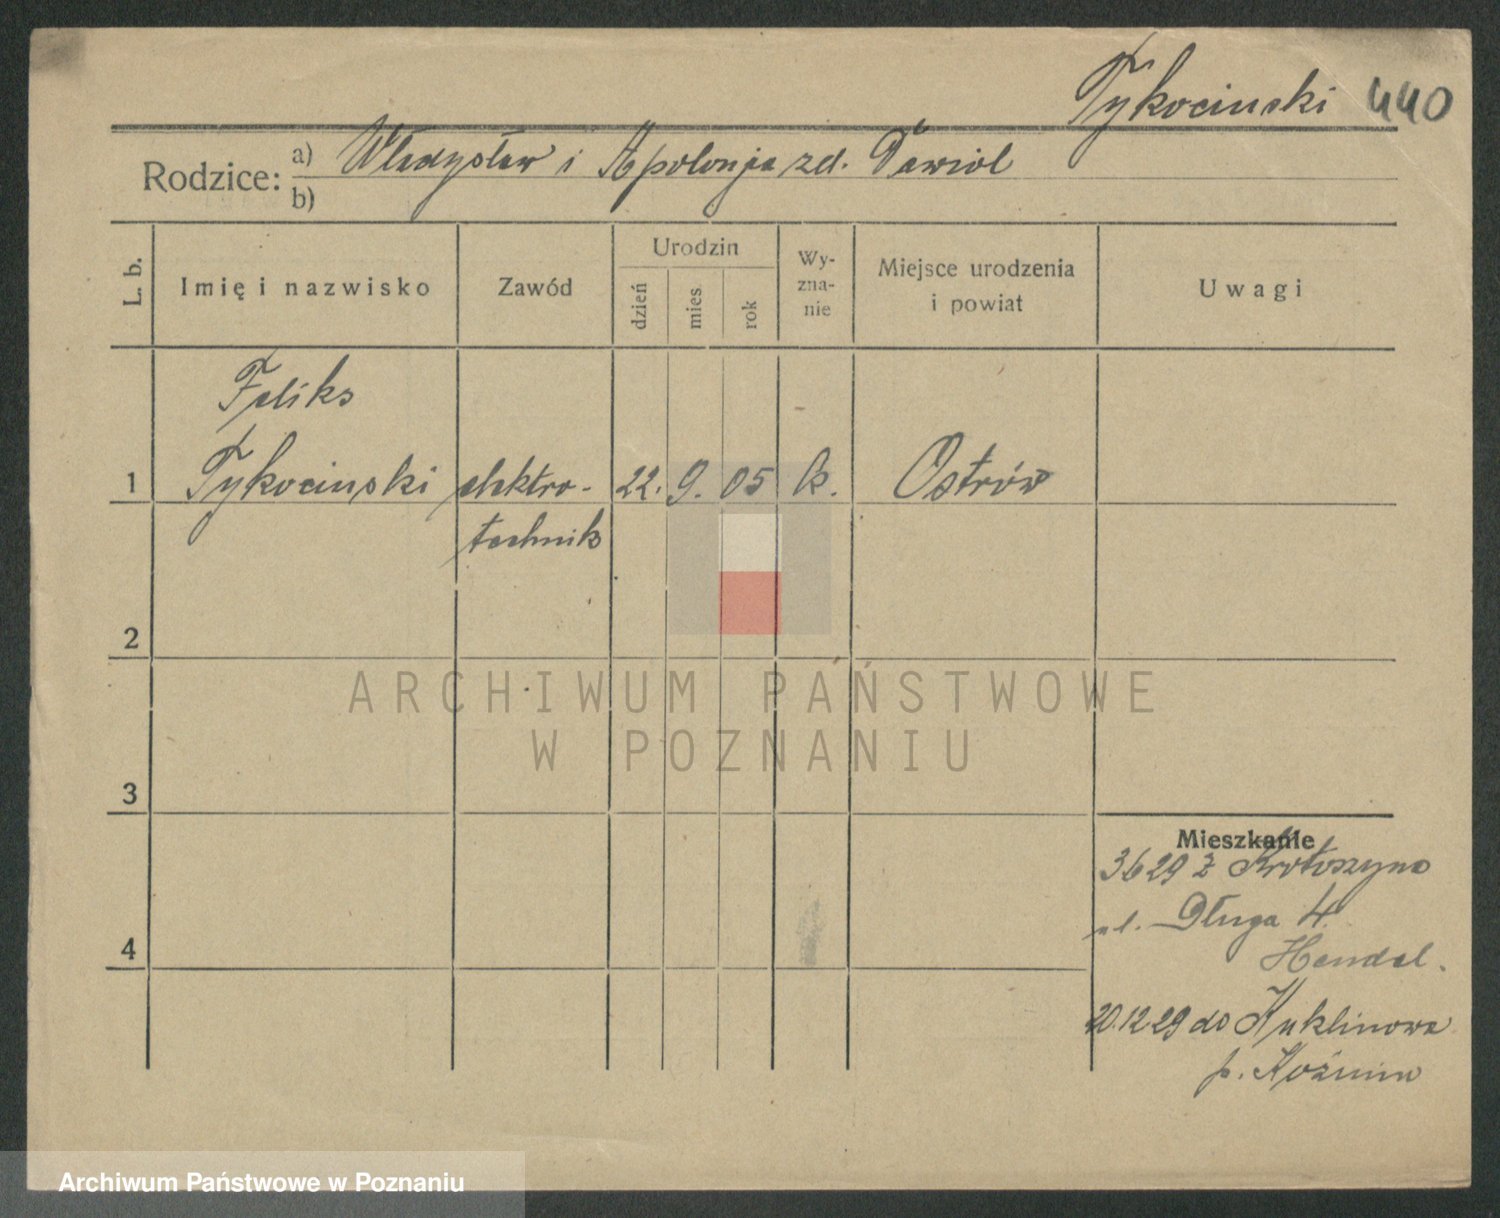 Tykocinski 440
Rodzice: a) Władysław i Apolonja zd. Dawiol
b)
L. b. Imię i nazwisko Zawód Urodzin dzień mies rok Wyznanie Miejsce urodzenia i powiat Uwagi
Feliks
1 Tykocinski elektro- 22. 9. 05 k. Ostrów
technik
2
ARCHIWUM PAŃSTWOWE
W POZNANIU
3
Mieszkanie
3629 z Krotoszyna
ul. Długa 4
4
Handel.
20.12.29 do Kuklinowa
p. Koźmin
Archiwum Państwowe w Poznaniu